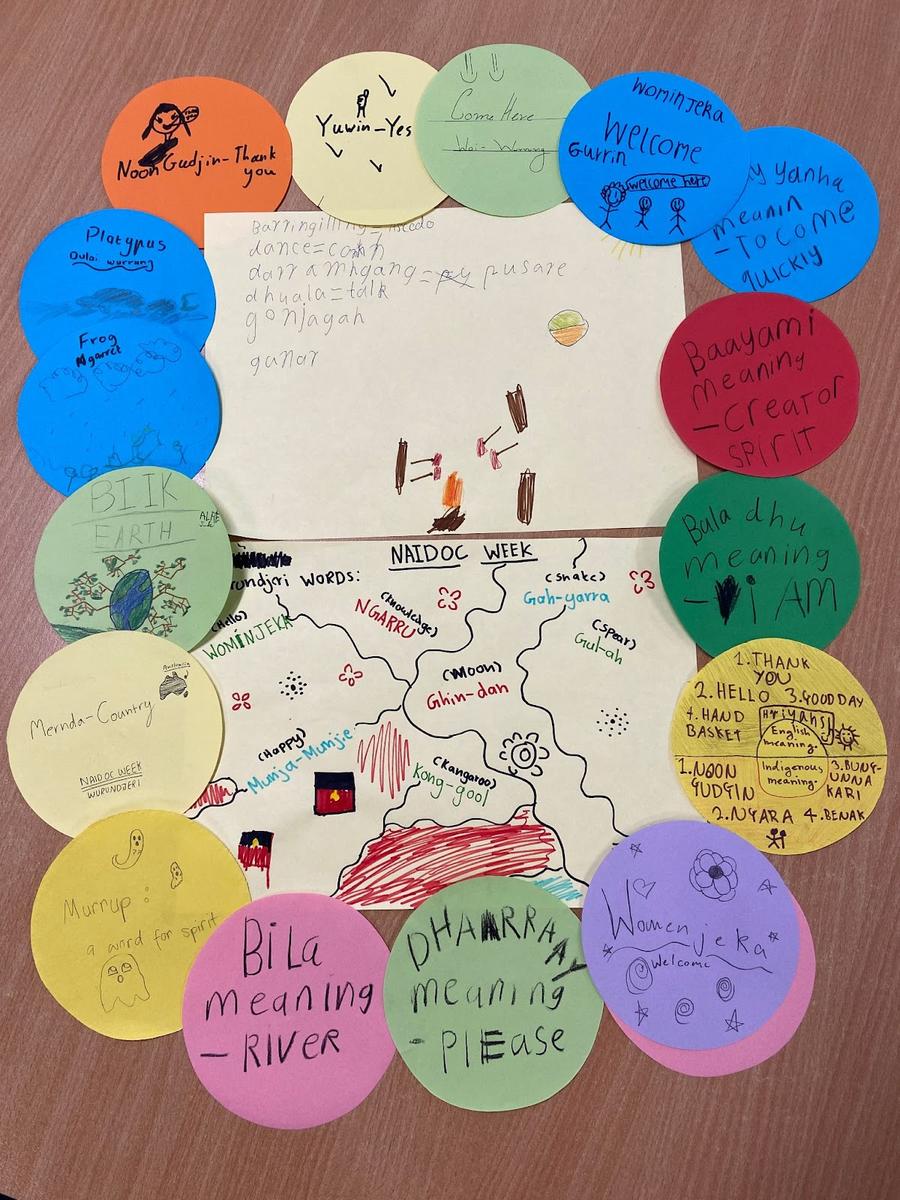 Noon Gudjin-Thank
you
Yuwin-Yes
Come Here
Woi-Wurrung
Wominjeka
Welcome
Gurrin
welcome here
yanha
meanin
-To come
quickly
Platypus
Dulai wurrung
Frog
Ngarret
dance=
=
dhuala=talk
gonjagah
gunar
Baayami
meaning
-Creator
SPIRIT
BIIK
EARTH
Bala dhu
meaning
-i AM
NAIDOC WEEK
WORDS:
(Hello)
WOMINJEKA
NGARRU
(snake)
Gah-yarra
(spear)
Gul-ah
(Moon)
Ghin-dan
(Happy)
Munja-Munjie
(Kangaroo)
Kong-gool
Australia
Mernda-Country
NAIDOC WEEK
WURUNDJERI
1.THANK
YOU
2.HELLO 3.GOOD DAY
4.HAND
BASKET
English
meaning.
Indigenous
meaning.
1.NOON
GUDGIN
3.BUNG-
UNNA
KARI
2.NYARA 4.BENAK
Murrup:
a word for spirit
BiLa
meaning
-RIVER
DHARRAAY
meaning
-PlEase
Womenjeka
Welcome